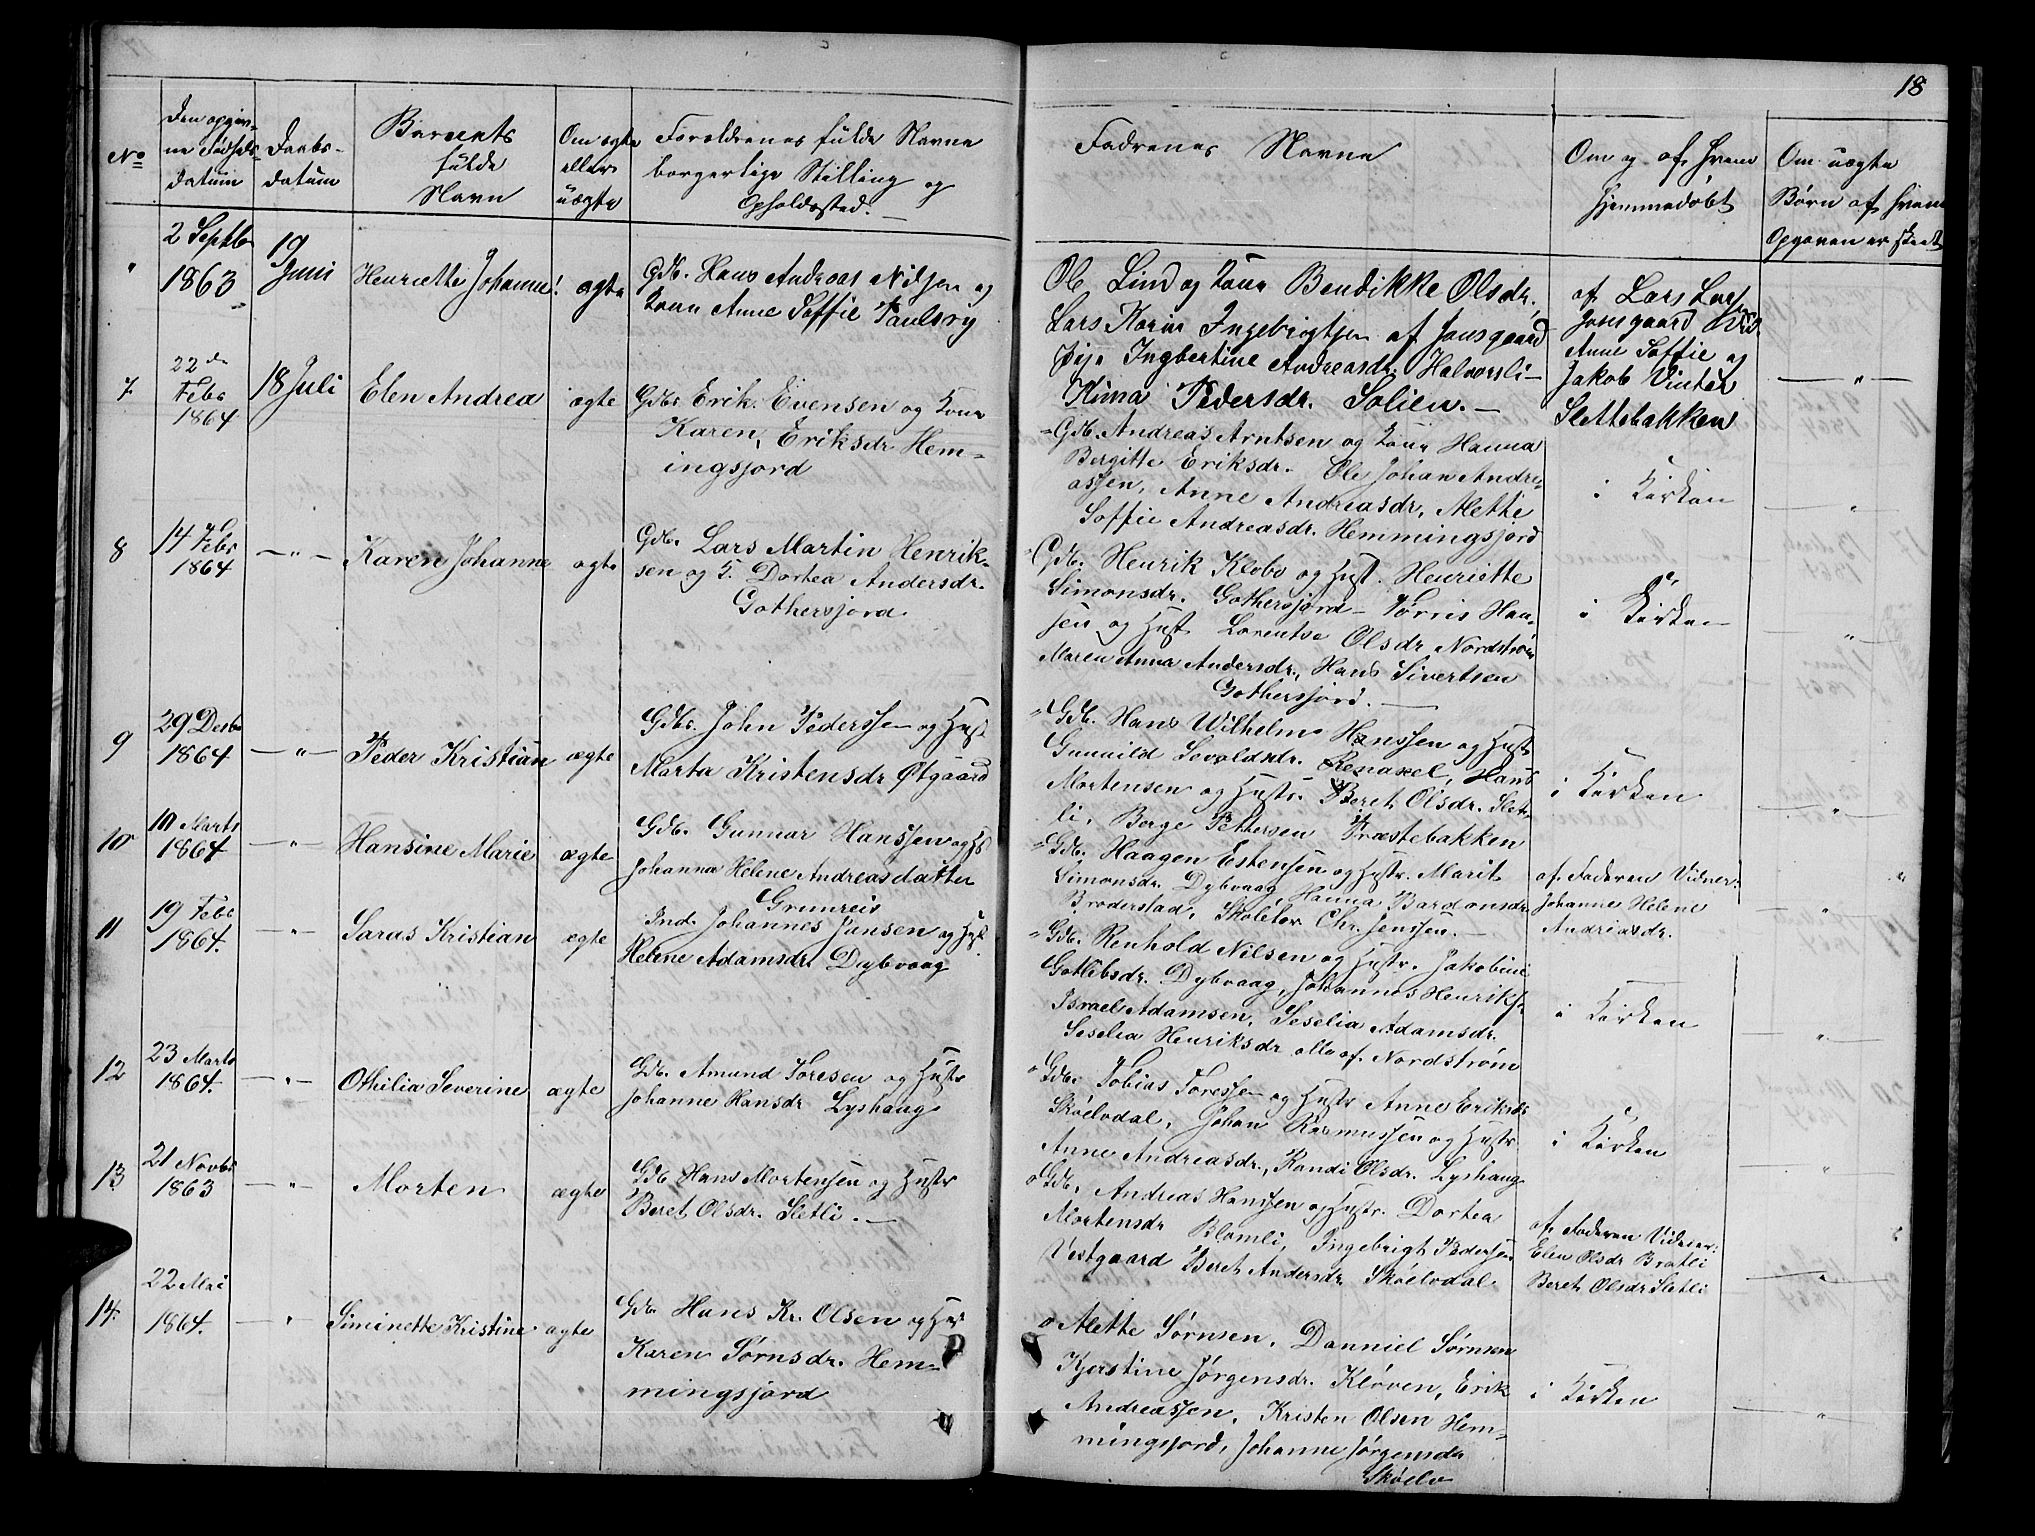 18
No
Den opgiv-
ne Fødsels-
datum
Daabs-
datum
Barnets
fulde
Navn
Om ægte
eller
uægte
Forældrenes fulde Navne
borgerlige Stilling og
Opholdssted.
Faddrenes Navne
Om og af hvem
hjemmedøbt
Om uægte
Børn af hvem
Opgaven er skeet
"
2 Septb
1863
19
Juni
Henriette Johanne
ægte
Gdb. Hans Andreas Nilsen og
Kone Anne Soffie
Ole Lind og Kone Bendikke Olsdr,
Lars Ingebrigtsen af Jonsgaard
Pige Ingbertine Andreasdr. Halvorsli-
Pedersdr. Solien.
af Lars
Jonsgaard
Anne Soffie og
Jakob Vinter
Slettebakken
7
22de
Febr
1864
18 Juli
Elen Andrea
ægte
Gdbr Erik Evensen og Kone
Karen Eriksdr Hem-
ingsjord
Gdb. Andreas Arntsen og Kone Hanna
Bergitte Eriksdr. Ole Johan Andre-
assen, Anne Andreasdr, Alette
Soffie Andreasdr. Hemmingsjord
i Kirken
"
8
14 Febr
1864
"
Karen Johanne
ægte
Gdb. Lars Martin Henrik-
sen og K. Dortea Andersdr.
Gothersjord
Gdb. Henrik Klebo og Hust. Henriette
Simonsdr. Gothersjord - Torris Han-
sen og Hust Lorentse Olsdr Nordstrøm
Maren Anna Andersdr., Hans Sivertsen
Gothersjord.
i Kirken
"
9
29 Decbr
1864
"
Peder Kristian
ægte
Gdbr. John Pederssen og Hust
Marta Kristensdr Øtgaard
Gdb. Hans Wilhelm Hanssen og Hustr
Gunnild Sevaldsdr. Renaxel, Hans
Mortensen og Hustr. Beret Olsdr. Slet-
li, Berge Pettersen Præstebakken
i Kirken
"
10
10 Marts
1864
"
Hansine Marie
ægte
Gdb. Gunnar Hanssen og H
Johanna Helene Andreasdatter
Grunreis
Gdb. Haagen Estensen og Hustr. Marit
Simonsdr. Dybvaag, Hanna Bardonsdr
Broderstad, Skolelær Chr. Jenssen.
af Faderen Vidner:
Johanne Helene
Andreasdr.
"
11
19 Febr
1864.
"
Saras Kristian
ægte
Ind. Johannes Jansen og Hust.
Helene Adamsdr Dybvaag
Gdb. Renhold Nilsen og Hustr. Jakobine
Gotlibsdr. Dybvaag, Johannes Henriks.
Israel Adamsen, Seselia Adamsdr.
Seselia Henriksdr alle af Nordstrøm
i Kirken
"
12
23 Marts
1864.
"
Othilia Severine
ægte
Gdb. Amund Toresen og Hustr
Johanne Hansdr Lyshaug
Gdb. Tobias Toressen og Hustr Anne Eriksdr
Skøelvdal, Johan Rasmussen og Hustr
Anne Andreasdr., Randi Olsdr. Lyshaug
i Kirken
"
13
21 Novbr
1863
"
Morten
ægte
Gdb Hans Mortensen og Hustr
Beret Olsdr. Sletli.
Gdb. Andreas Hanssen og Hustr. Dortea
Mortensdr Blomli, Ingebrigt Pedersen
Vestgaard Beret Andersdr Skøelvdal
af Faderen Vidner:
Elen Olsdr Bratli
Beret Olsdr Sletli
"
14.
22 Mai
1864.
"
Siminette Kristine
ægte
Gdb. Hans Kr. Olsen og Hust
Karen Sørnsdr. Hem-
mingsjord
Alette Sørnsen, Danniel Sørnsen
Kjerstine Jørgensdr. Kløven, Erik
Andreassen, Kristen Olsen Hem-
mingsjord, Johanne Jørgensdr
Skøelv
i Kirken
"